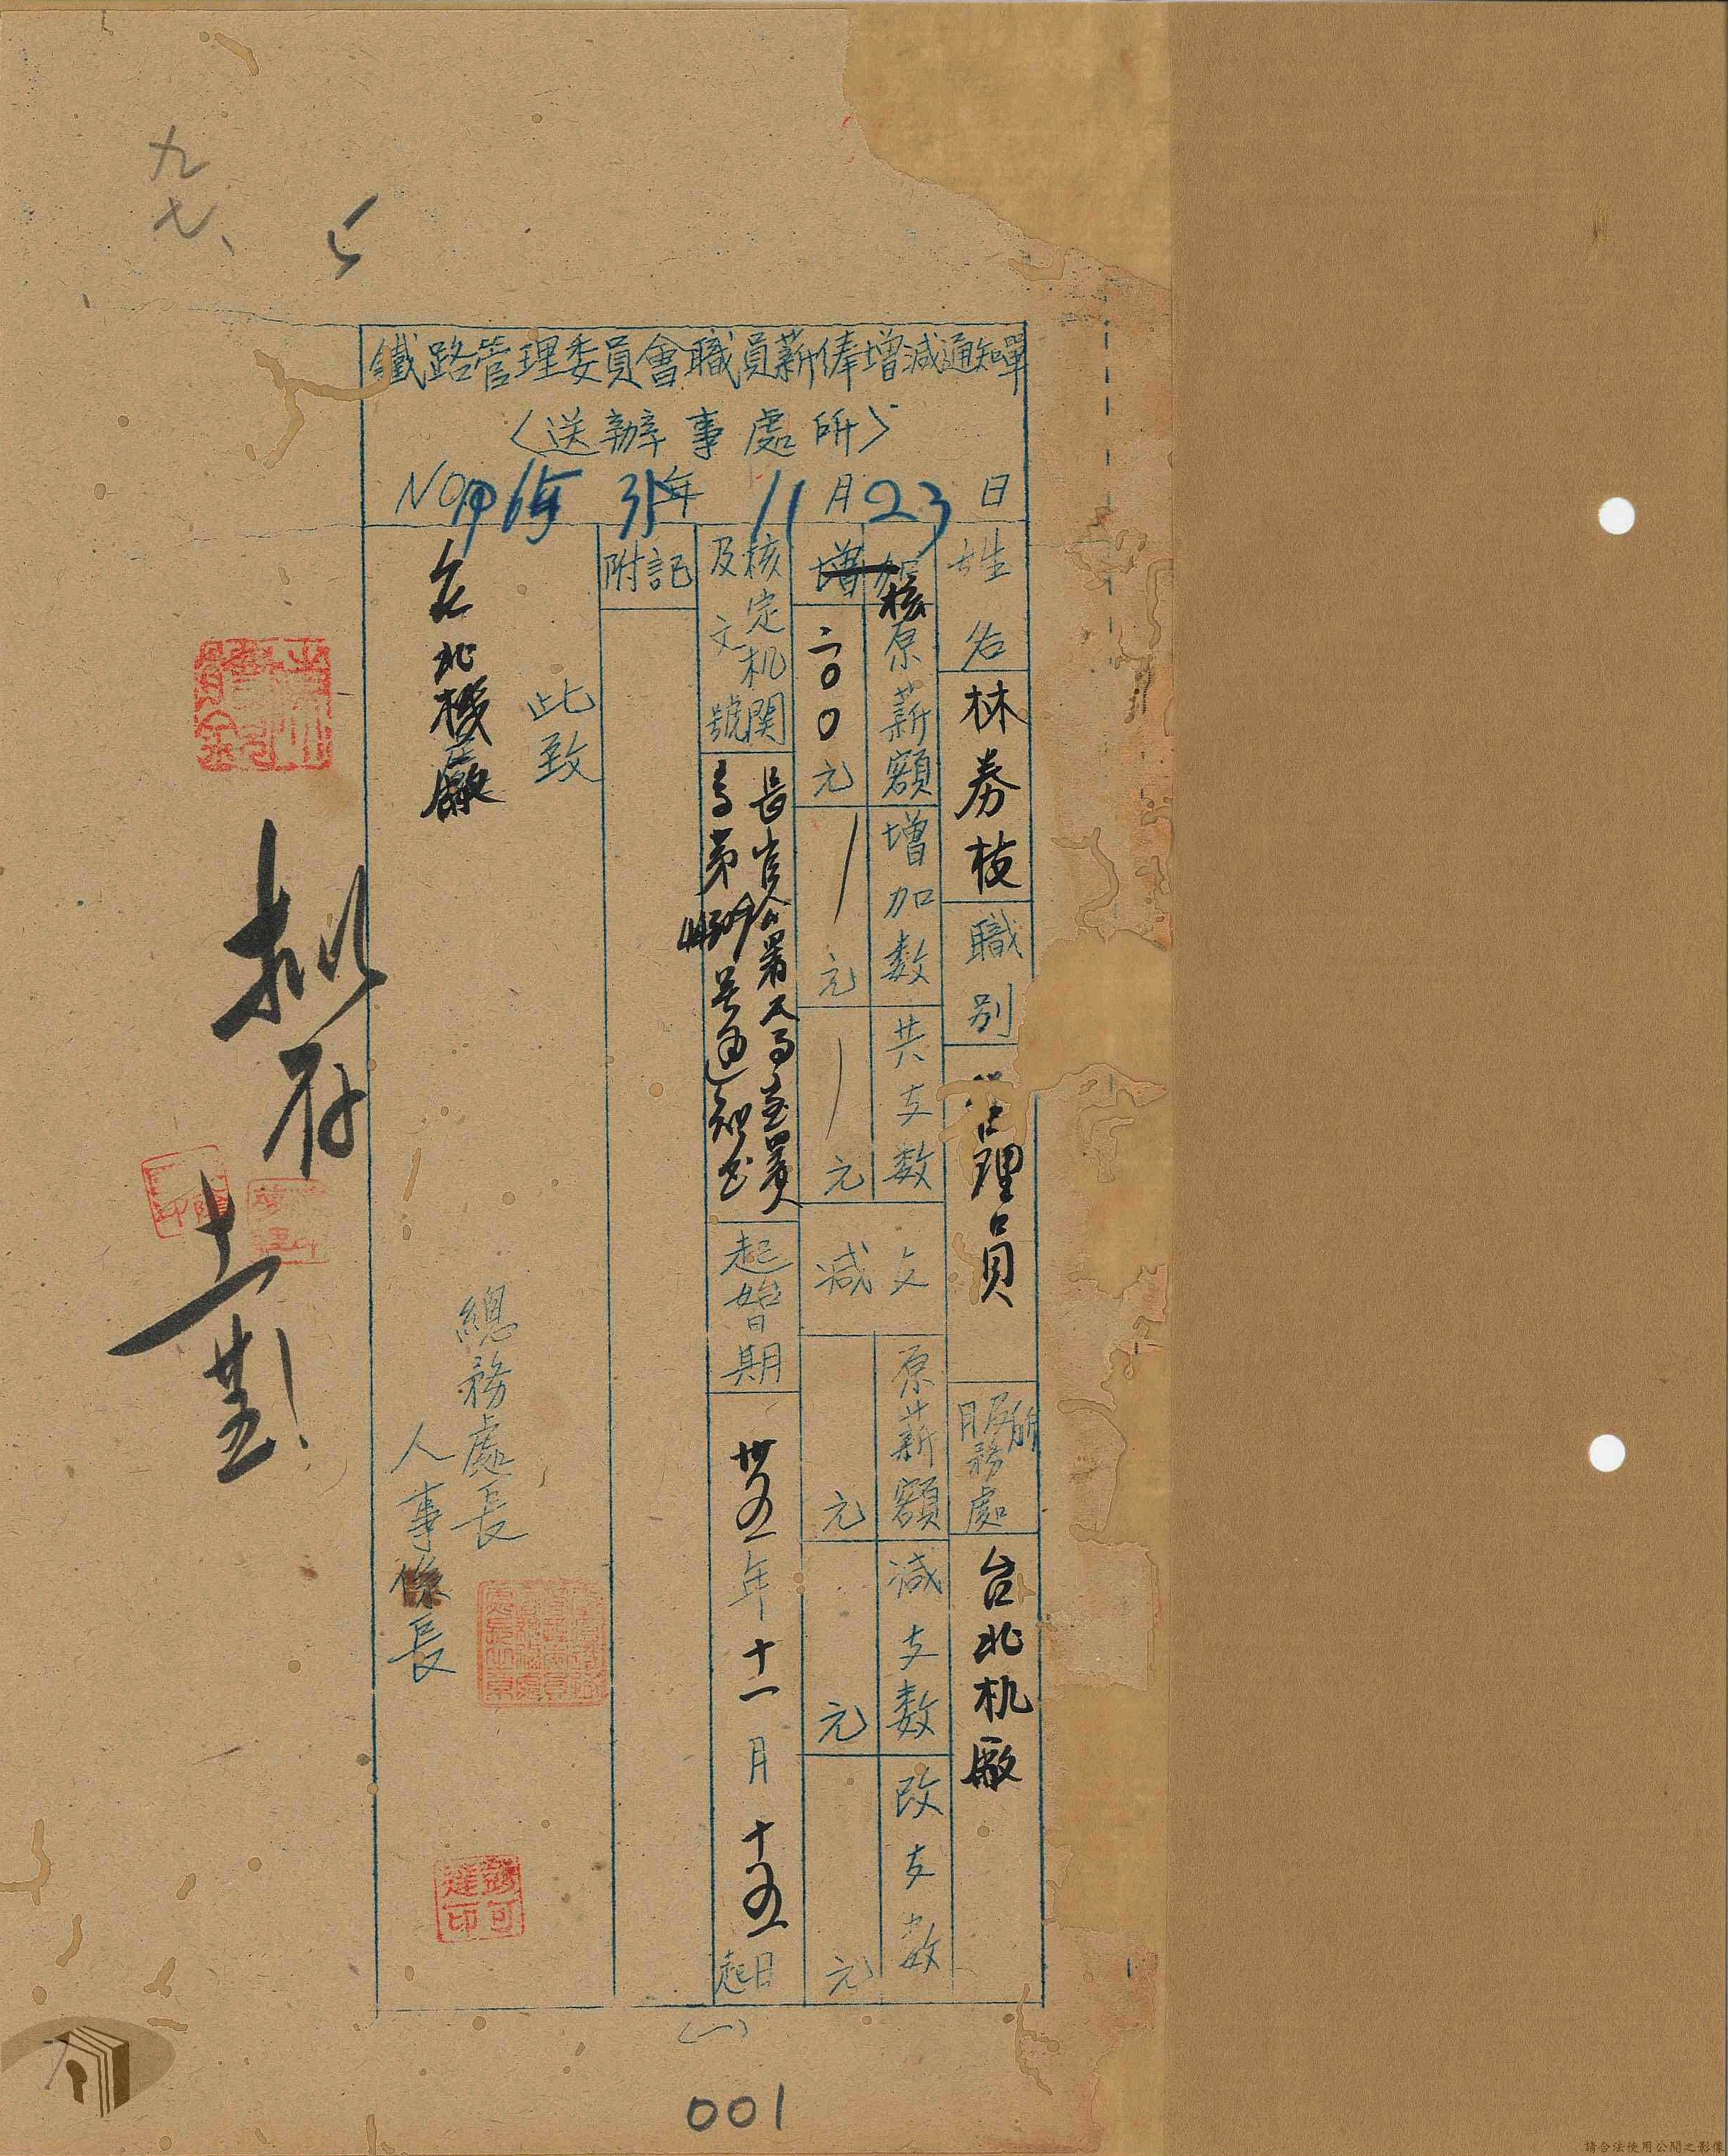 九七、
鐵路管理委員會職員薪俸增減通知單
(送辦事處所)
NO 35年11月23日
姓名 林劵枝 職別 管理員 服務處所 台北机廠
核 原薪額 增加数 共支数 支 原薪額 減支数 改支数
增 二〇〇元 元 元 減 元 元 元
核定机関及文號 長官公署 号通知書 起始日期 卅五年十一月十五日起
附記
此致
台北機廠
總務處長
人事係長
擬存
(一)
001
請合法使用公開之影像